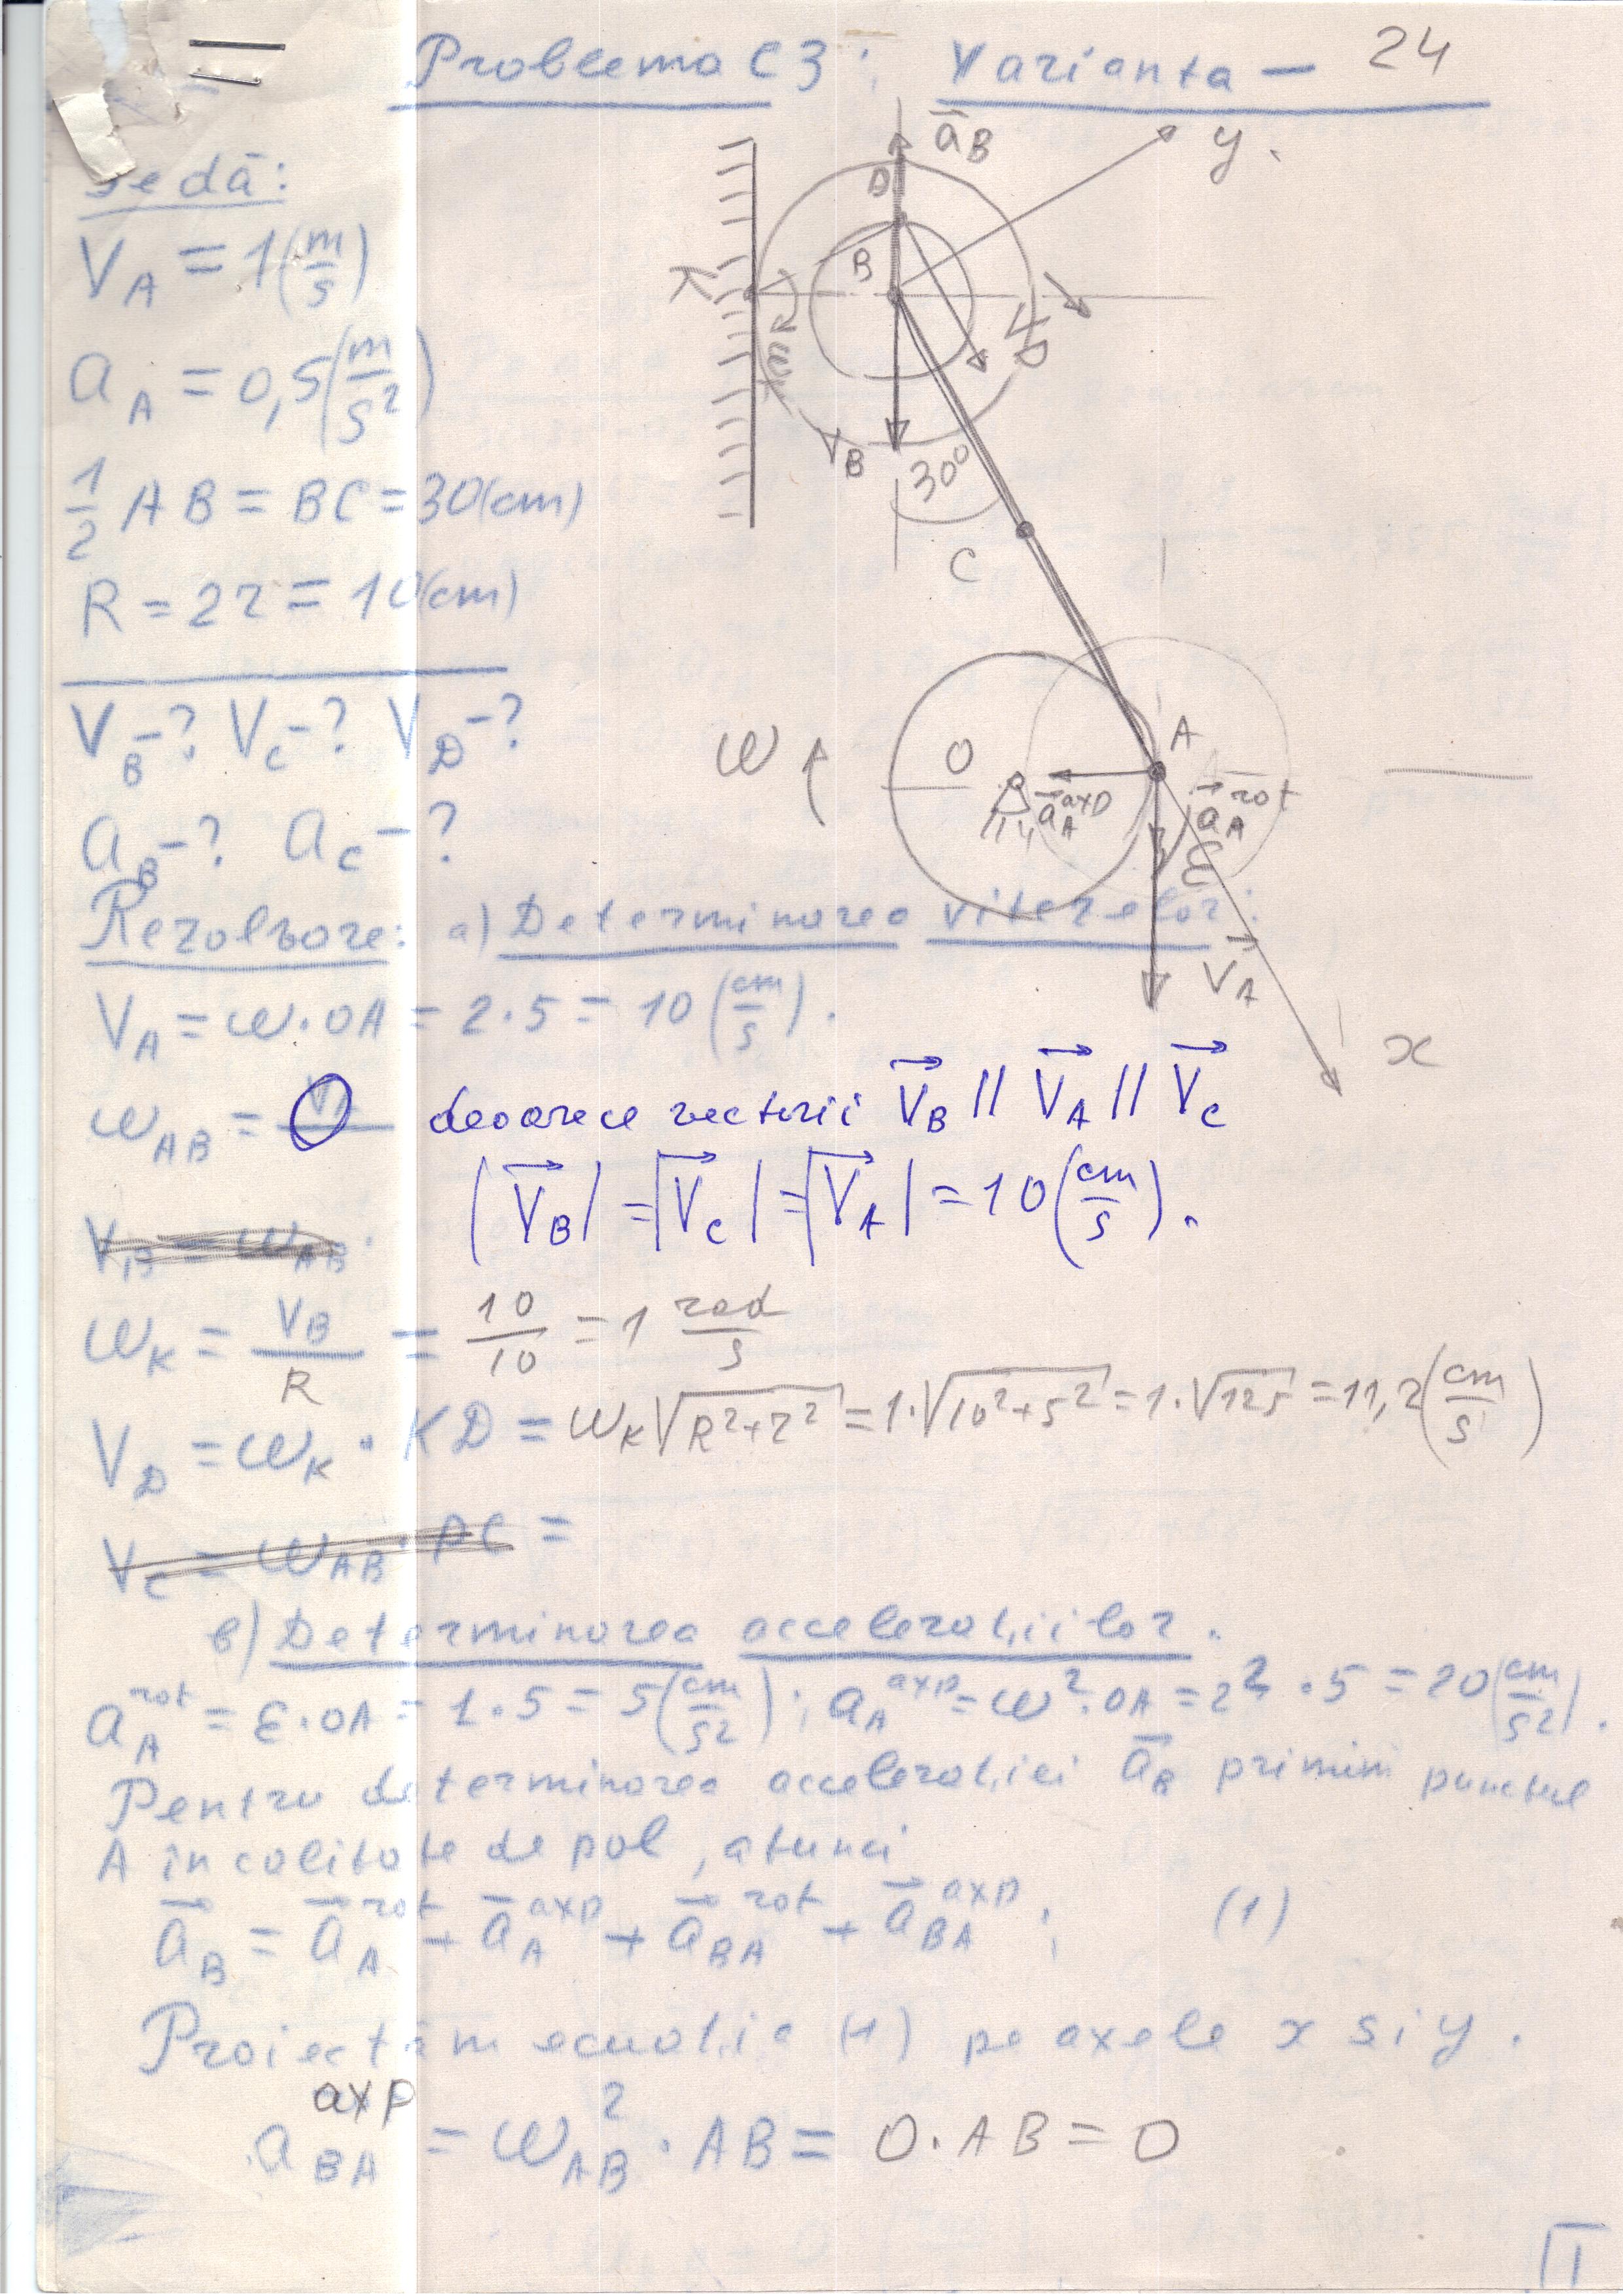 Problema C3: Varianta - 24
Se dă:
V_A = 1 (m/s)
a_A = 0,5 (m/s²)
1/2 AB = BC = 30 (cm)
R = 2r = 10 (cm)
V_B-? V_C-? V_D-?
a_B-? a_C-?
a_B
y
D
B
K
ω_K
V_D
V_B
30°
C
A
ω
O
a_A^axp
a_A^rot
ε
V_A
x
Rezolvare: a) Determinarea vitezelor:
V_A = ω·OA = 2·5 = 10 (cm/s).
ω_AB = 0 deoarece vectorii V_B || V_A || V_C
|V_B| = |V_C| = |V_A| = 10 (cm/s).
V_B = ω_AB·
ω_K = V_B/R = 10/10 = 1 rad/s
V_D = ω_K · KD = ω_K √(R²+r²) = 1·√(10²+5²) = 1·√125 = 11,2 (cm/s)
V_C = ω_AB · PC =
b) Determinarea accelerațiilor.
a_A^rot = ε·OA = 1·5 = 5 (cm/s²); a_A^axp = ω²·OA = 2²·5 = 20 (cm/s²).
Pentru determinarea accelerației a_B primim punctul
A în calitate de pol, atunci
a_B = a_A^rot + a_A^axp + a_BA^rot + a_BA^axp; (1)
Proiectăm ecuația (1) pe axele x și y.
a_BA^axp = ω_AB² · AB = 0·AB = 0